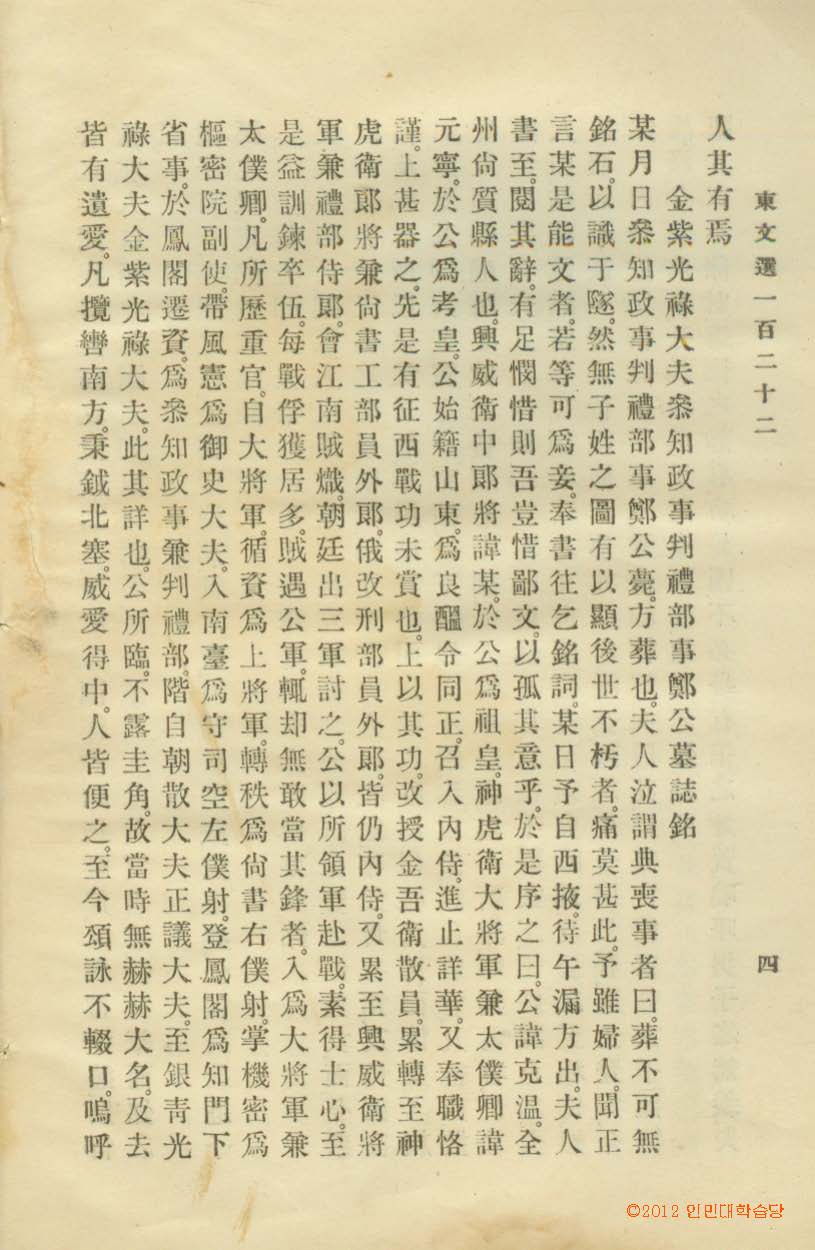 東文選一百二十二
四
人其有焉
金紫光祿大夫叅知政事判禮部事鄭公墓誌銘
某月日叅知政事判禮部事鄭公薨。方葬也。夫人泣謂典喪事者曰。葬不可無
銘石。以識于墜。然無子姓之圖有以顯後世不朽者。痛莫甚此。予雖婦人。聞正
言某是能文者。若等可爲妾。奉書往乞銘詞。某日予自西掖。待午漏方出。夫人
書至。閱其辭。有足憫惜則吾豈惜鄙文。以孤其意乎。於是序之曰。公諱克溫。全
州尙質縣人也。興威衛中郞將諱某。於公爲祖皇。神虎衛大將軍兼太僕卿諱
元寧。於公爲考皇。公始籍山東。爲良醞令同正。召入內侍。進止詳華。又奉職恪
謹。上甚器之。先是有征西戰功未賞也。上以其功。改授金吾衛散員。累轉至神
虎衛郞將兼尙書工部員外郞。俄改刑部員外郞。皆仍內侍。又累至興威衛將
軍兼禮部侍郞。會江南賊熾。朝廷出三軍討之。公以所領軍赴戰。素得士心。至
是益訓鍊卒伍。每戰俘獲居多。賊遇公軍。輒却無敢當其鋒者。入爲大將軍兼
太僕卿。凡所歷重官。自大將軍。循資爲上將軍。轉秩爲尙書右僕射。掌機密爲
樞密院副使。帶風憲爲御史大夫。入南臺爲守司空左僕射。登鳳閣爲知門下
省事。於鳳閣遷資。爲叅知政事兼判禮部。階自朝散大夫正議大夫。至銀靑光
祿大夫金紫光祿大夫。此其詳也。公所臨。不露圭角。故當時無赫赫大名。及去
皆有遺愛。凡攬轡南方。秉鉞北塞。威愛得中。人皆便之。至今頌詠不輟口。嗚呼
©2012 인민대학습당